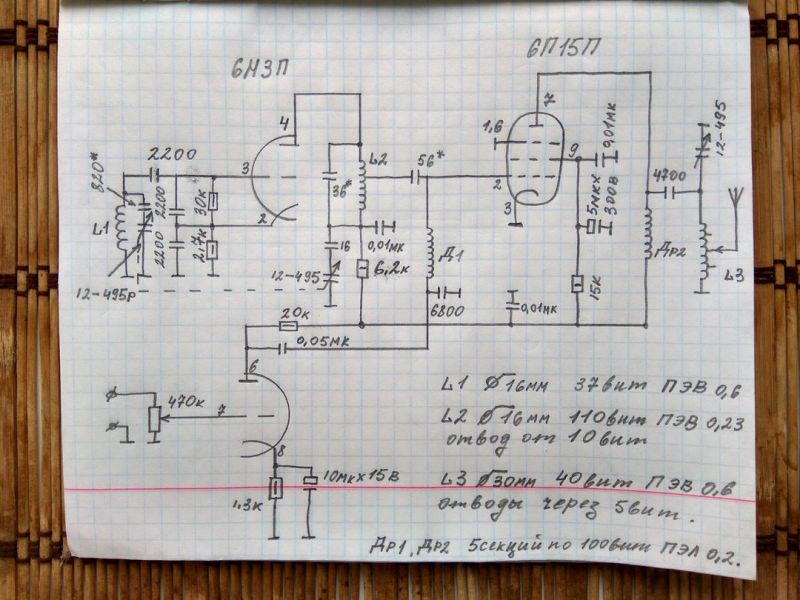 6Н3П
6П15П
4
3
2
2200
820*
2200
2200
30к
2,7к
L1
12-495р
36*
L2
16
12-495
0,01мк
6,2к
56*
Д1
6800
0,01мк
7
1,6
9
2
3
0,01мк
5мкх
300В
15к
4700
Др2
12-495
L3
20к
0,05мк
6
7
8
470к
1,3к
10мкх15В
L1 Ø16мм 37вит ПЭВ 0,6
L2 Ø16мм 110вит ПЭВ 0,23
отвод от 10вит
L3 Ø30мм 40вит ПЭВ 0,6
отводы через 5вит.
Др1, Др2 5секций по 100вит ПЭЛ 0,2.